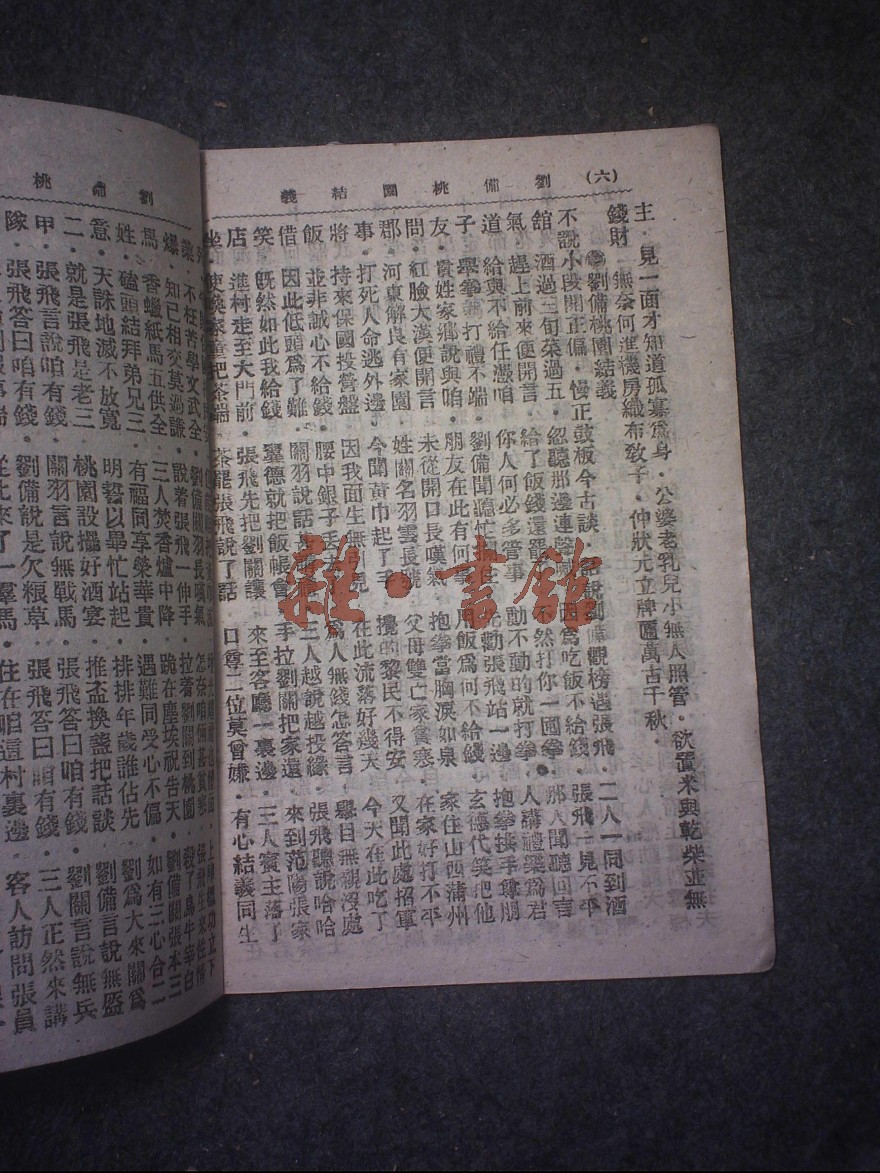 (六)
劉備桃園結義
主·見一面才知道孤寡為身·公婆老乳兒小無人照管·欲糴米與乾柴並無
錢財·無奈何進機房織布教子·仲狀元立牌匾萬古千秋·
劉備桃園結義
不說小段開正偏·慢正鼓板今古談·說劉備觀榜遇張飛·二人一同到酒
舘·酒過三旬菜過五·忽聽那邊連聲·因為吃飯不給錢·張飛一見不平
氣·趕上前來便開言·給了飯錢還罷·不然打你一國拳·那人聞聽回言
道·給與不給任憑咱·你人何必多管事·動不動的就打拳·人講禮樂為君
子·舉拳就打禮不端·劉備聞聽忙·勸張飛站一邊·抱拳拱手尊朋
友·貴姓家鄉說與咱·朋友在此有何事·用飯為何不給錢·玄德代笑把他
問·紅臉大漢便開言·未從開口長嘆氣·抱拳當胸淚如泉·家住山西蒲州
郡·河東解良有家園·姓關名羽雲長·父母雙亡家貧寒·在家好打不平
事·打死人命逃外邊·今聞黃巾起了手·攪的黎民不得安·又聞此處招軍
將·持來保國投營盤·因我面生無·在此流落好幾天·今天在此吃了
飯·並非誠心不給錢·腰中銀子丟·為人無錢怎答言·舉目無親沒處
借·因此低頭為了難·關羽說話·三人越說越投緣·張飛聽說哈哈
笑·旣然如此我給錢·翼德就把飯帳會·手拉劉關把家還·來到范陽張家
店·進村走至大門前·張飛先把劉關讓·來至客廳一裏邊·三人賓主落了
坐·使喚家童把茶端·茶罷張飛說了話·口尊二位莫嫌·有心結義同生
雜·書舘
劉備桃
不枉苦學文武全
知已相交莫過謙·劉備關羽長嘆氣·怎奈咱倆甚貧寒
說着張飛一伸手·拉着劉關到桃園·殺了烏牛宰白
馬·香蠟紙馬五供全·三人焚香爐中降·跪在塵埃祝告天·劉備關張本三
姓·磕頭結拜弟兄三·有福同享榮華貴·遇難同受心不偏·如有三心合二
意·天誅地滅不放寬·明誓以畢忙站起·排排年歲誰佔先·劉為大來關為
二·就是張飛是老三·桃園設擺好酒宴·推盃換盞把話談·劉備言說無盔
甲·張飛言說咱有錢·關羽言說無戰馬·張飛答曰咱有錢·劉關言說無兵
隊·張飛答曰咱有錢·劉備說是欠粮草·張飛答曰咱有錢·三人正然來講
從此來了一羣馬·住在咱這村裏邊·客人訪問張員